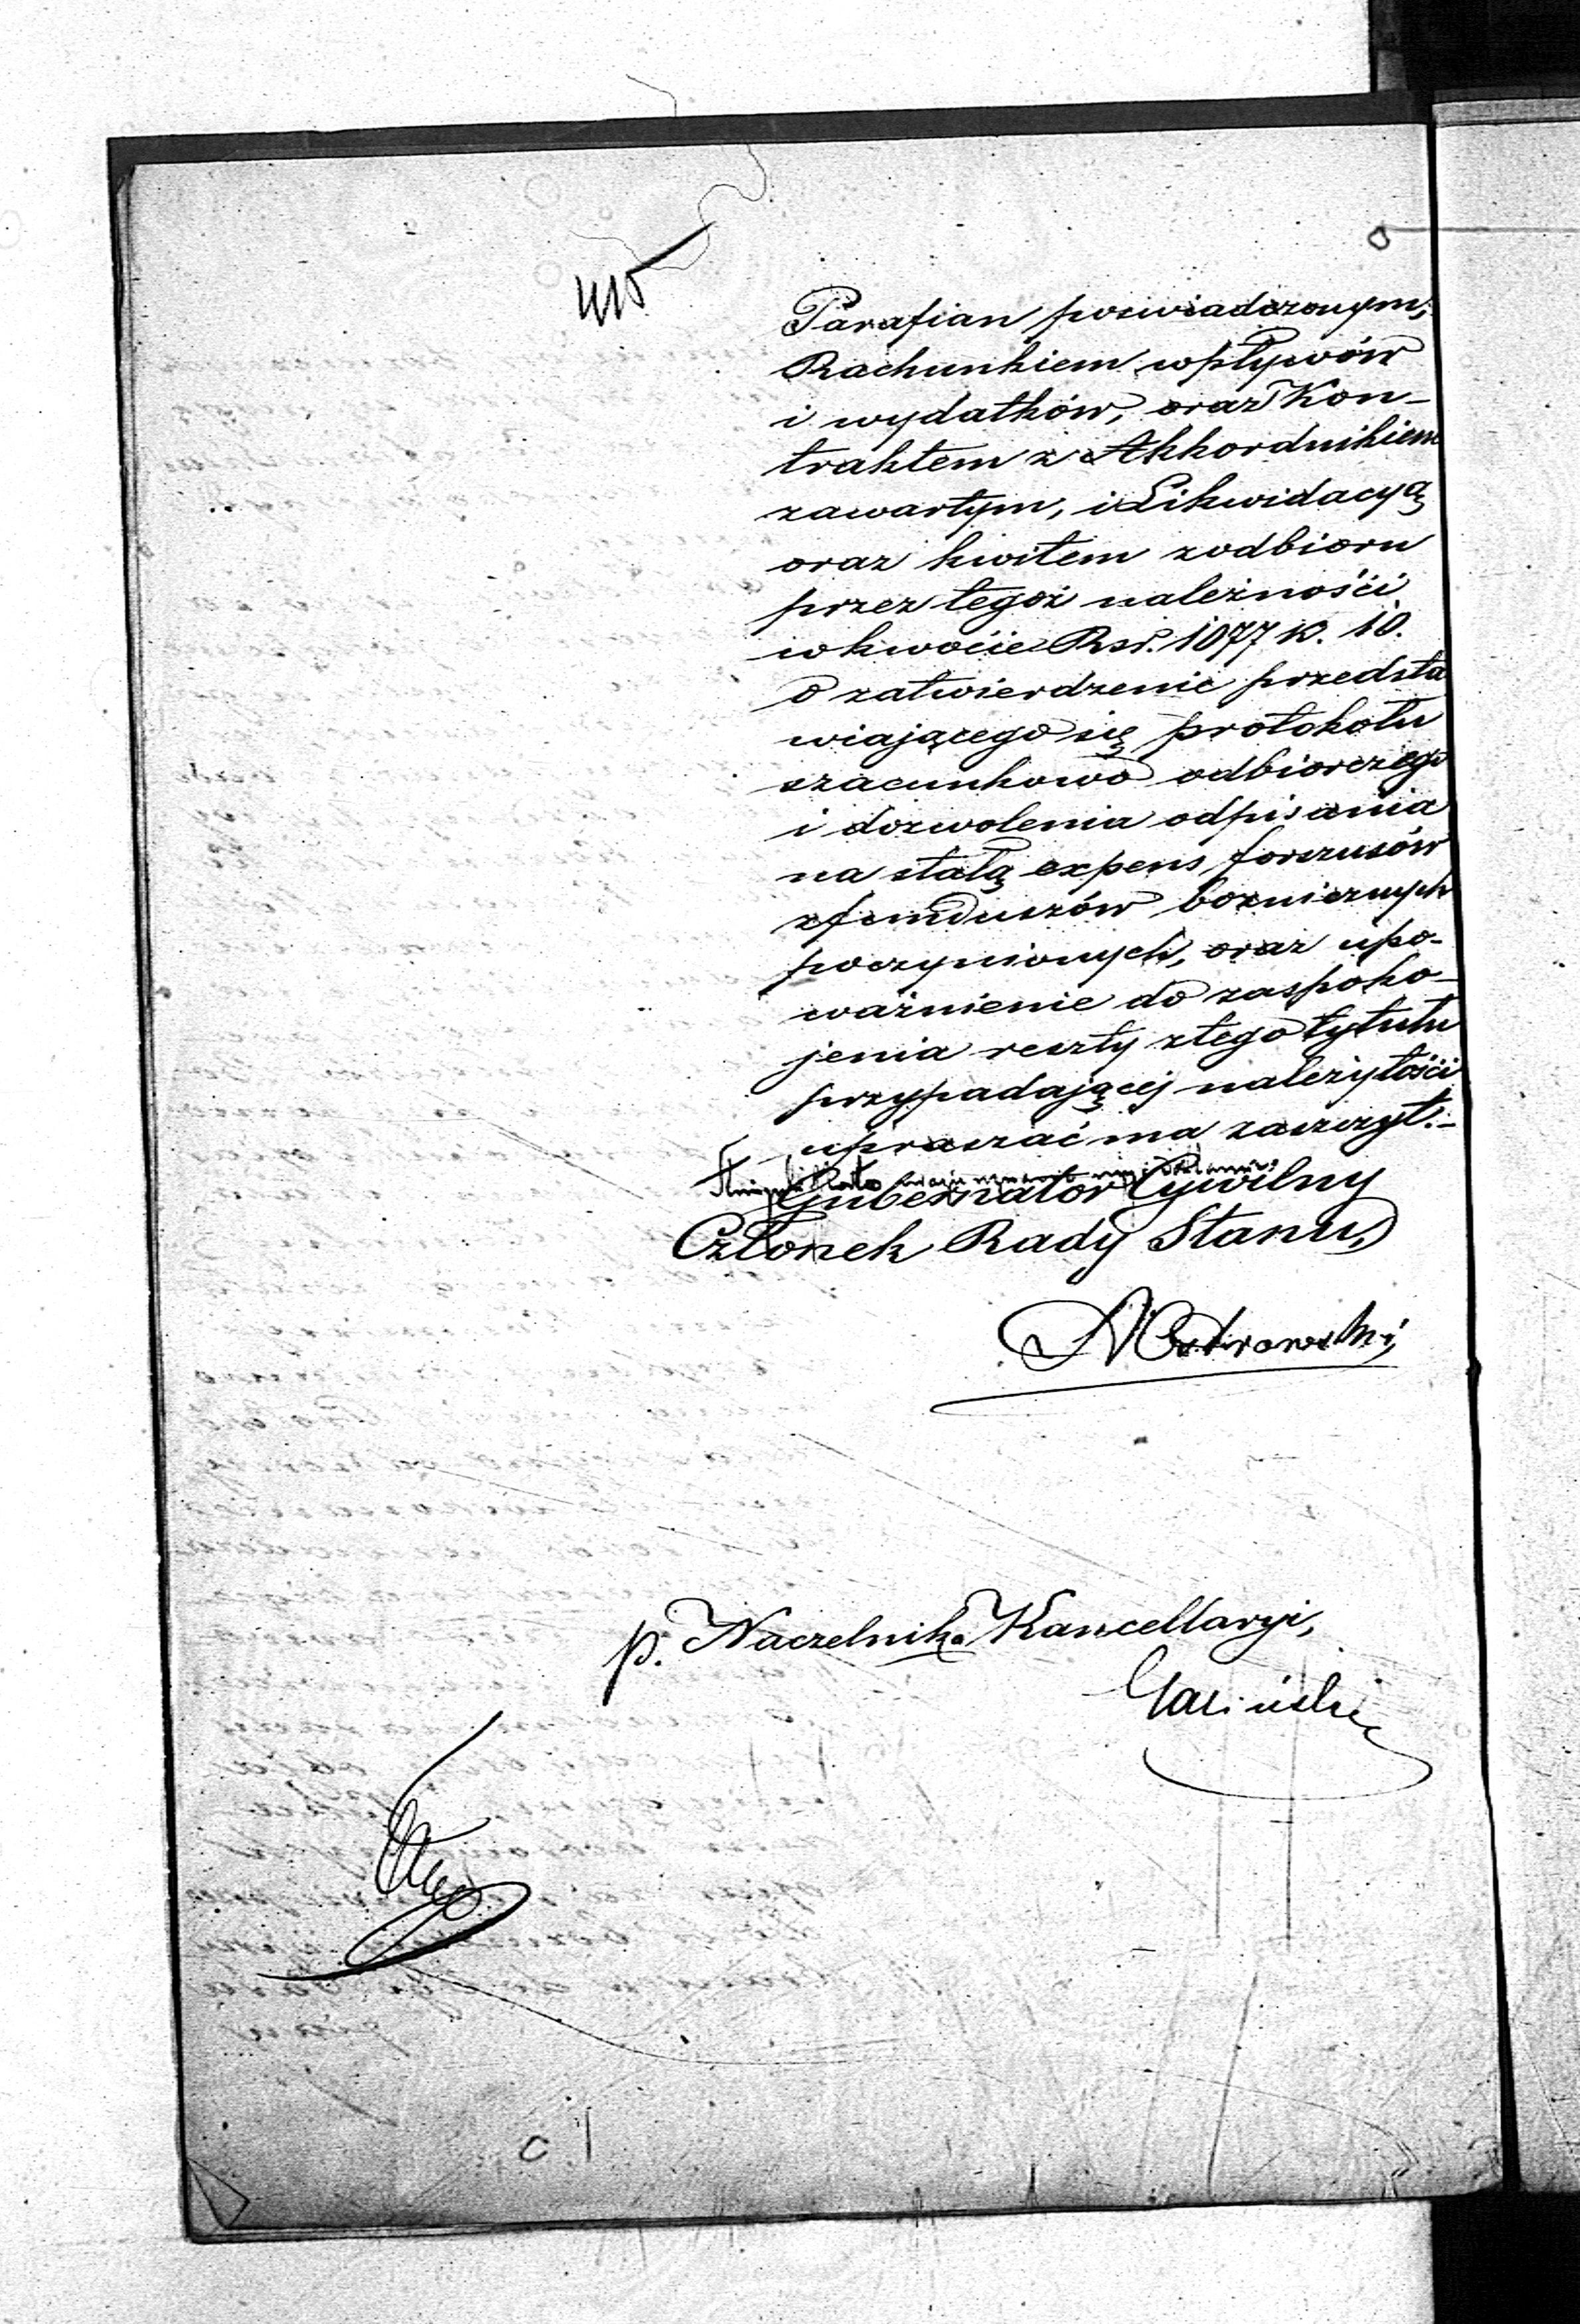 Parafian poswiadczonym,
Rachunkiem wpływów
i wydatków, oraz Kon-
traktem z Akkordnikiem
zawartym, i Likwidacyą
oraz kwitem z odbioru
przez tegoż należnośći
w kwoćie Rsr. 1077 k. 10.
o zatwierdzenie przedsta
wiającego się protokołu
szacunkowo odbiorczego
i dozwolenia odpisania
na stałą expens forszusów
z funduszów boznicznych
poczynionych, oraz upo-
ważnienie do zaspoko-
jenia reszty z tego tytułu
przypadającej należytośći
upraszać ma zaszczyt.-
Gubernator Cywilny
Członek Rady Stanu,
Ostrowski
p. Naczelnika Kancellaryi,